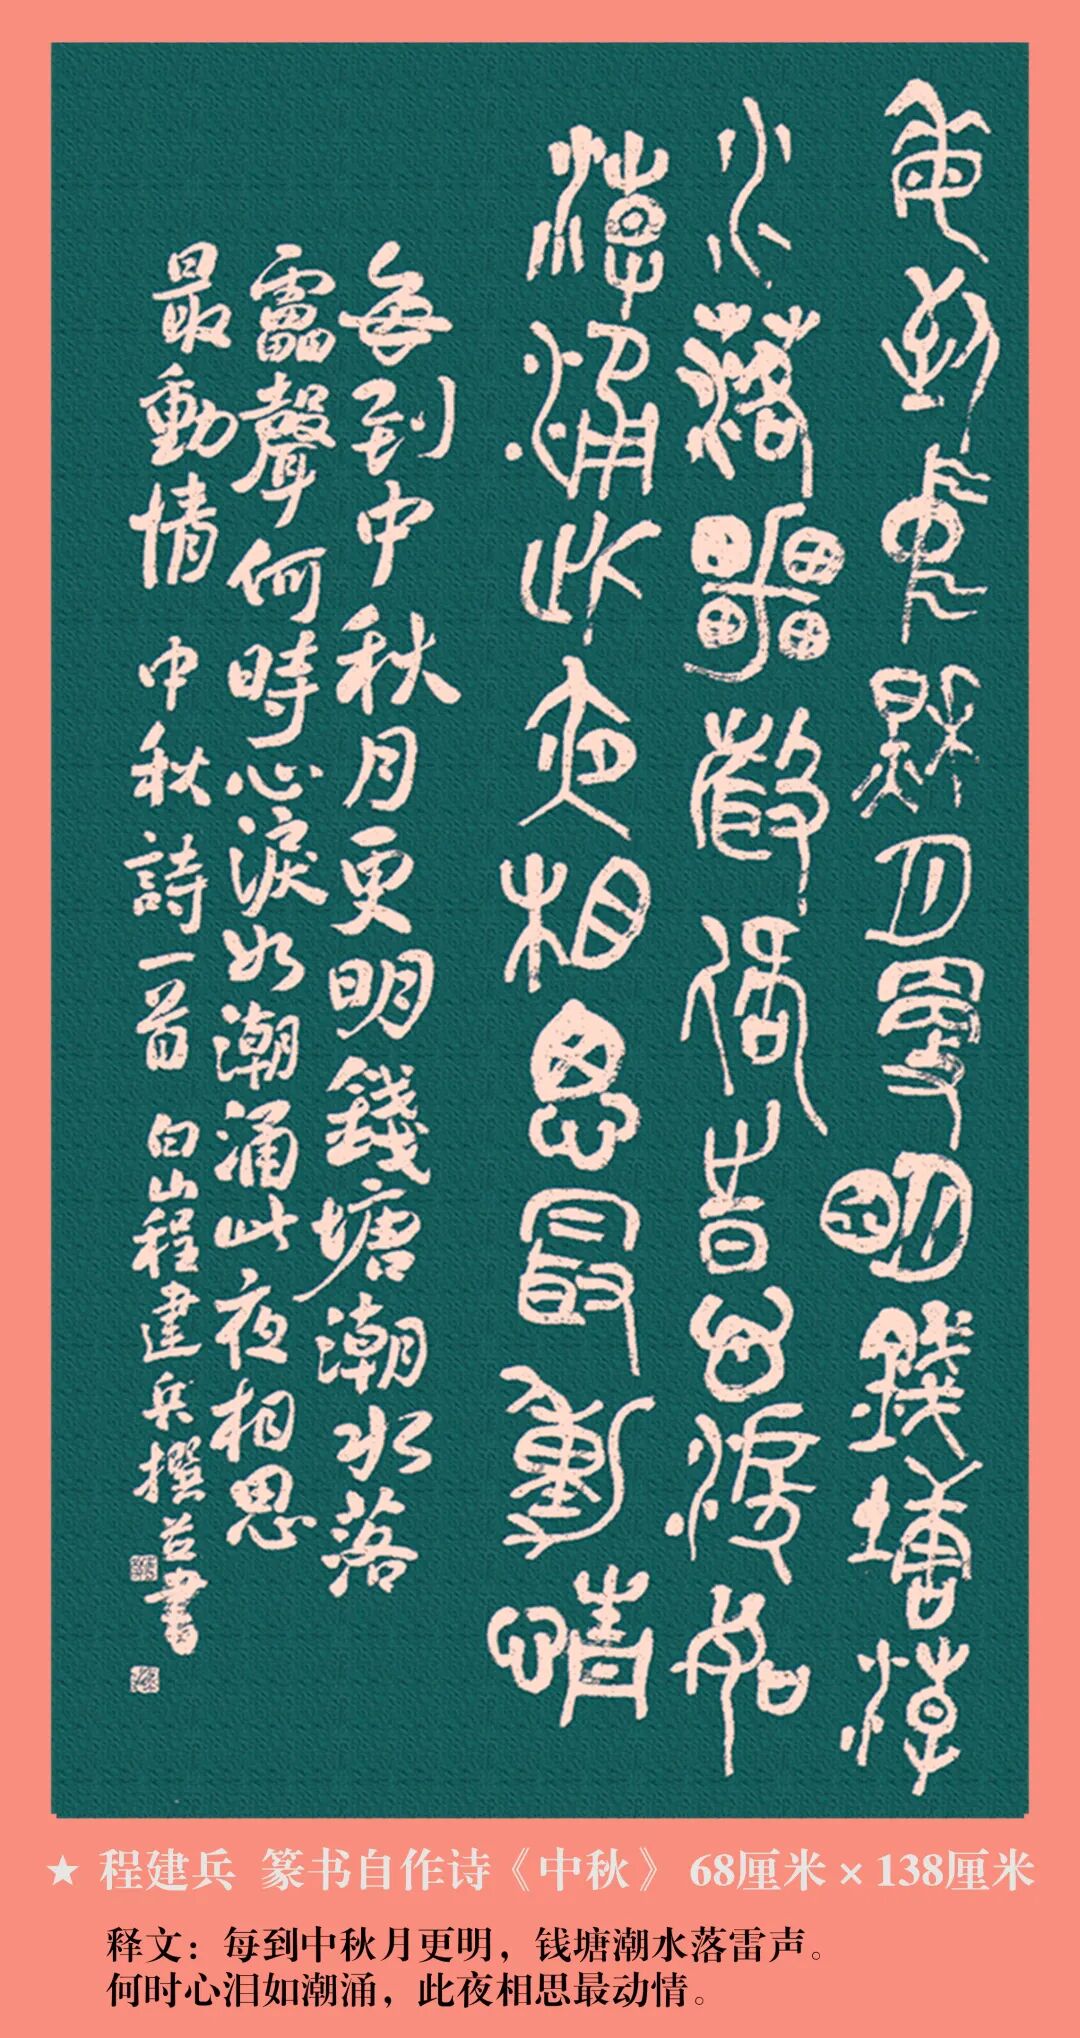 每到中秋月更明錢塘潮
水落雷聲何時心淚如
潮涌此夜相思最動情
每到中秋月更明錢塘潮水落
靁聲何時心淚如潮涌此夜相思
最動情 中秋詩一首 白山程建兵撰并書
★ 程建兵 篆书自作诗《中秋》 68厘米 × 138厘米
释文：每到中秋月更明，钱塘潮水落雷声。
何时心泪如潮涌，此夜相思最动情。